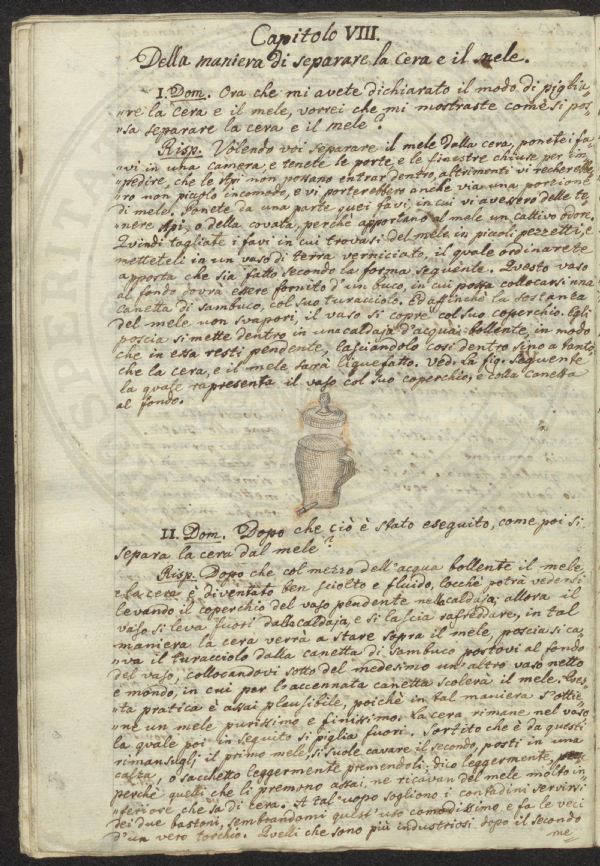 Capitolo VIII.
Della maniera di separare la Cera e il mele.
I. Dom. Ora che mi avete dichiarato il modo di piglia„
„re la cera e il mele, vorrei che mi mostraste come si pos„
„sa separare la cera e il mele?
Risp. Volendo voi separare il mele dalla cera, ponete i fa„
„vi in una camera, e tenete le porte, e le finestre chiuse per im„
„pedire, che le Api non possano entrar dentro, altrimenti vi recherebbe„
„ro non piccolo incomodo, e vi porterebbero anche via una porzione
di mele. Ponete da una parte quei favi, in cui vi avessero delle te„
nere Api, o della covata, perchè apportano al mele un cattivo odore.
Quindi tagliate i favi in cui trovasi del mele in picoli pezzetti, e
metteteli in un vaso di terra verniciato, il quale ordinarete
apporta che sia fatto secondo la forma seguente. Questo vaso
al fondo dovrà essere fornito d'un buco, in cui possa collocarsi una
canetta di Sambuco, col suo turacciolo. Ed affinchè la sostanza
del mele non svapori, il vaso si copre col suo coperchio. Egli
poscia si mette dentro in una caldaja d'acqua bollente, in modo
che in essa resti pendente, lasciandolo così dentro sino a tanto,
che la cera, e il mele sarà liquefatto. Ved. la fig. Seguente
la quale rapresenta il vaso col suo coperchio, e colla canetta
al fondo.
II. Dom. Dopo che ciò è stato eseguito, come poi si
separa la cera dal mele?
Risp. Dopo che col mezzo dell'acqua bollente il mele,
e la cera è diventato ben sciolto e fluido, locchè potrà vedersi
levando il coperchio del vaso pendente nella caldaja; allora il
vaso si leva fuori dalla caldaja, e si lascia rafreddare, in tal
maniera la cera verrà a stare sopra il mele, poscia si ca„
„va il turacciolo dalla canetta di Sambuco postovi al fondo
del vaso, collocandovi sotto del medesimo un'altro vaso netto
e mondo, in cui per l'accennata canetta scolerà il mele. Ques„
„ta pratica è assai plausibile, poichè in tal maniera s'ottie„
„ne un mele purissimo e finissimo. La cera rimane nel vaso
la quale poi in seguito si piglia fuori. Sortito che è da questi
rimansugli il primo mele, si suole cavare il secondo, posti in una
calza, o sacchetto leggermente premendoli; dico leggermente,
perchè quelli che li premono assai, ne ricavan del mele molto in„
„feriore che sa di cera. A tal'uopo sogliono i contadini servirsi
dei due bastoni, sembrandomi quest'uso comodissimo, e fa le veci
d'un vero torchio. Quelli che sono più industriosi dopo il secondo
me„